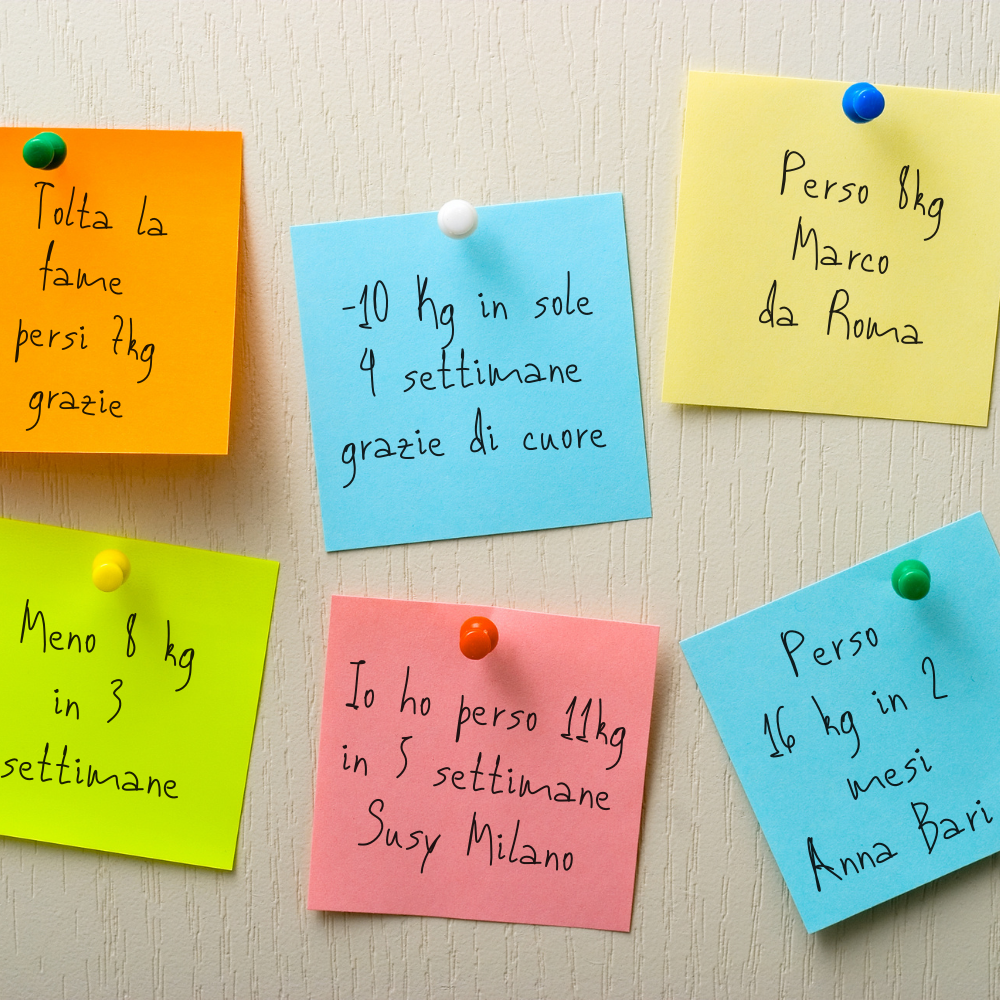 Tolta la
fame
persi 7kg
grazie
-10 Kg in sole
4 settimane
grazie di cuore
Perso 8kg
Marco
da Roma
Meno 8 kg
in 3
settimane
Io ho perso 11kg
in 5 settimane
Susy Milano
Perso
16 kg in 2
mesi
Anna Bari